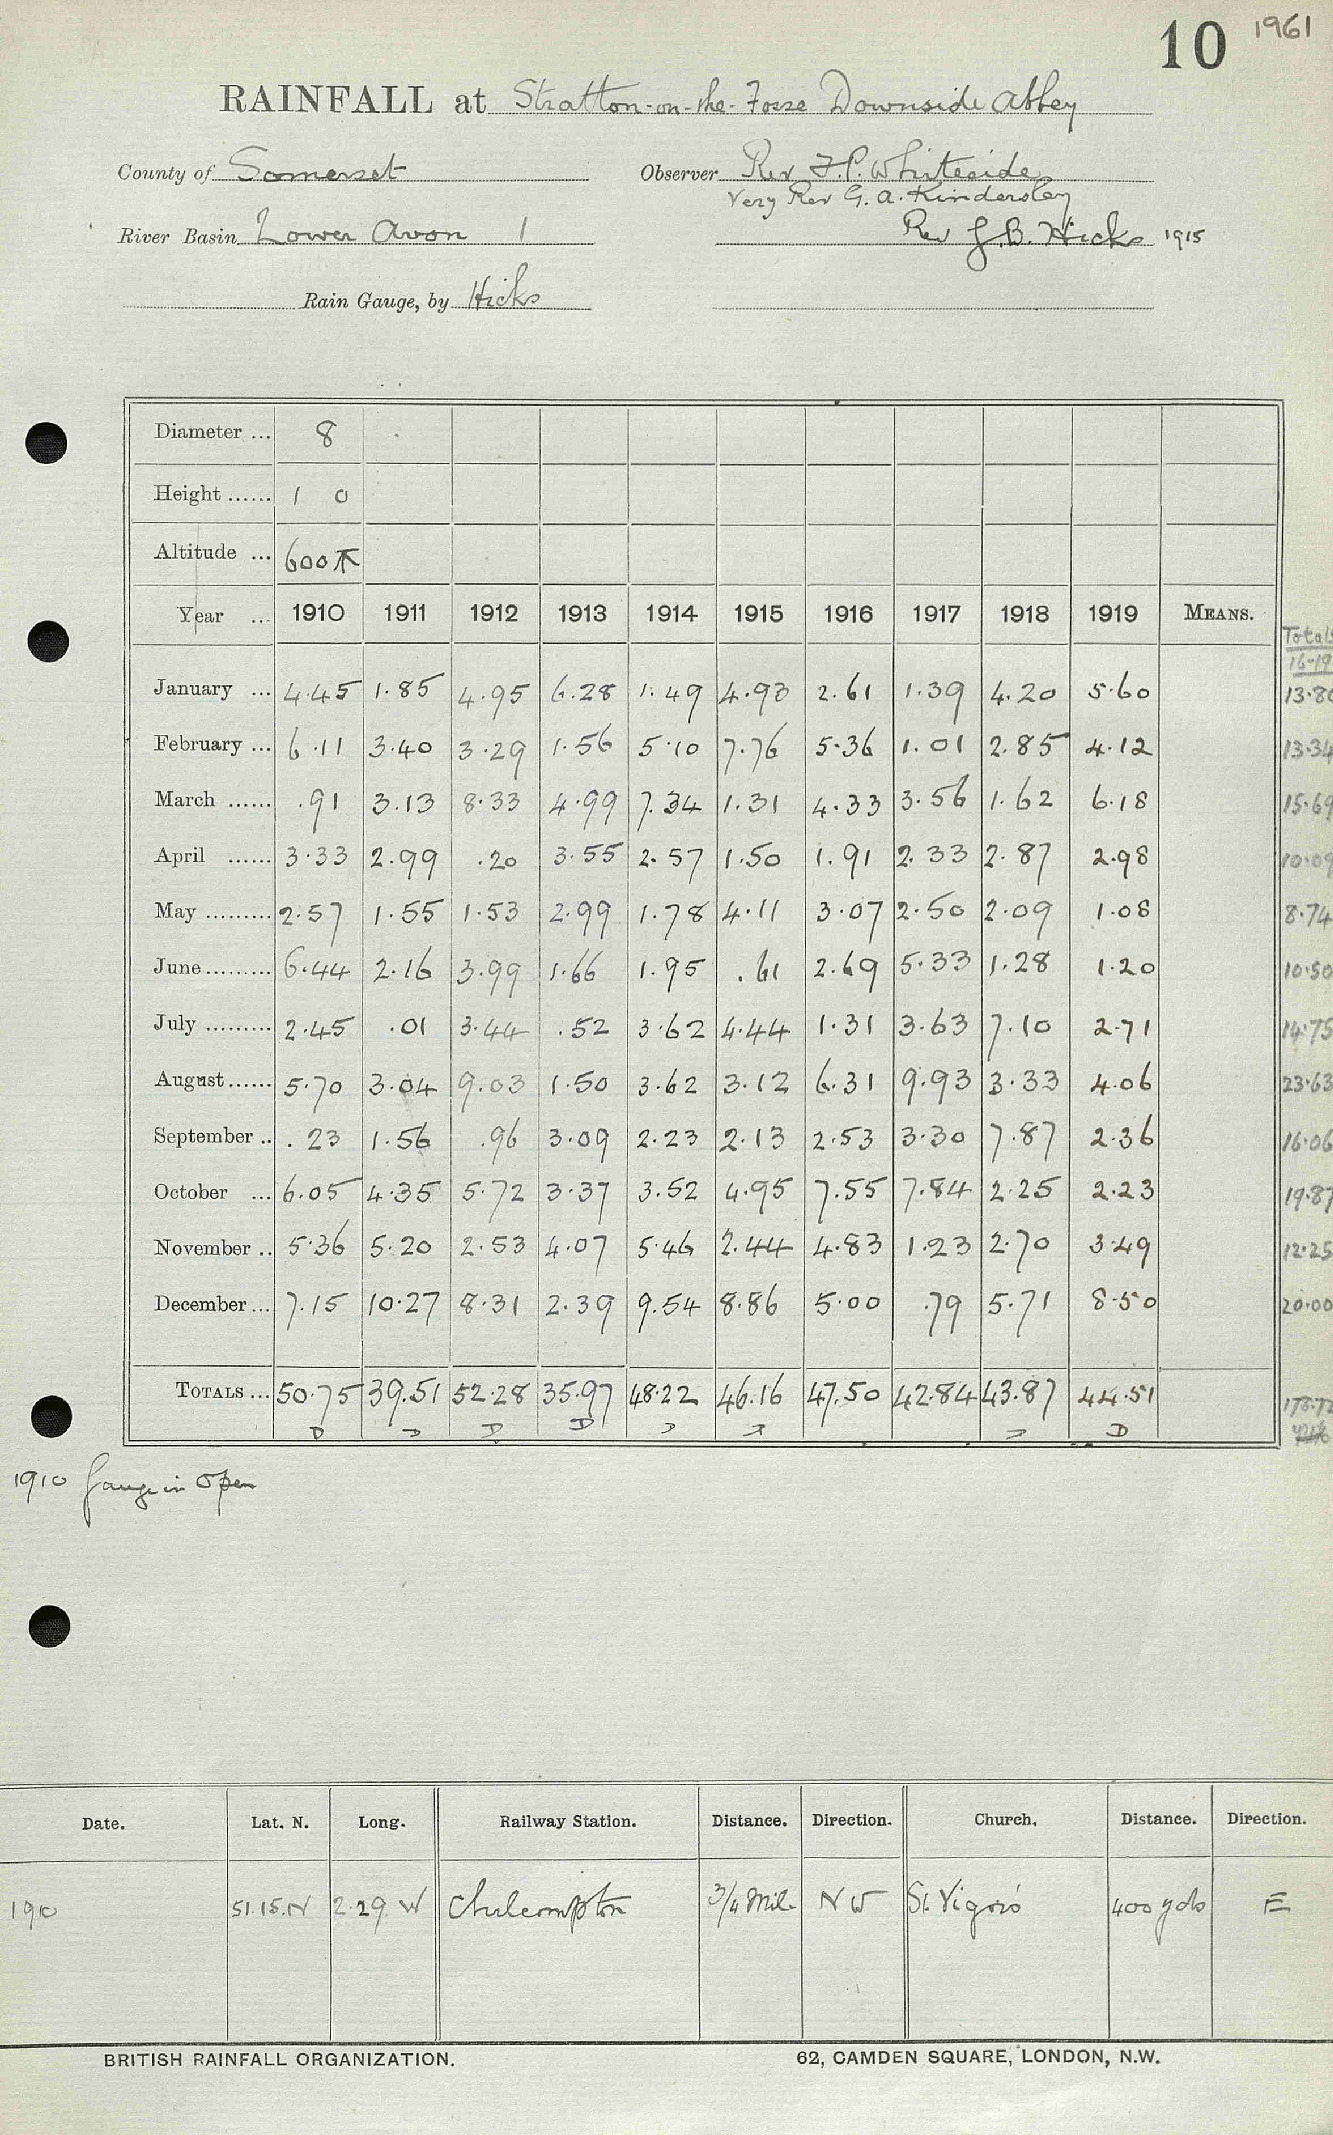 10 1961
RAINFALL at Stratton-on-the-Fosse Downside Abbey
County of Somerset Observer Rev F.P. Whiteside
Very Rev G. A. Kindersley
River Basin Lower Avon 1 Rev J.B. Hicks 1915
Rain Gauge, by Hicks
Diameter ... 8
Height ...... 1 0
Altitude ... 600
Year ... 1910 1911 1912 1913 1914 1915 1916 1917 1918 1919 MEANS.
Totals
16-19
January ... 4.45 1.85 4.95 6.28 1.49 4.93 2.61 1.39 4.20 5.60 13.80
February ... 6.11 3.40 3.29 1.56 5.10 7.76 5.36 1.01 2.85 4.12 13.34
March ...... .91 3.13 8.33 4.99 7.34 1.31 4.33 3.56 1.62 6.18 15.69
April ...... 3.33 2.99 .20 3.55 2.57 1.50 1.91 2.33 2.87 2.98 10.09
May ......... 2.57 1.55 1.53 2.99 1.78 4.11 3.07 2.50 2.09 1.08 8.74
June ......... 6.44 2.16 3.99 1.66 1.95 .61 2.69 5.33 1.28 1.20 10.50
July ......... 2.45 .01 3.44 .52 3.62 4.44 1.31 3.63 7.10 2.71 14.75
August ...... 5.70 3.04 9.03 1.50 3.62 3.12 6.31 9.93 3.33 4.06 23.63
September .. .23 1.56 .96 3.09 2.23 2.13 2.53 3.30 7.87 2.36 16.06
October ... 6.05 4.35 5.72 3.37 3.52 4.95 7.55 7.84 2.25 2.23 19.87
November .. 5.36 5.20 2.53 4.07 5.46 2.44 4.83 1.23 2.70 3.49 12.25
December ... 7.15 10.27 8.31 2.39 9.54 8.86 5.00 .79 5.71 8.50 20.00
TOTALS ... 50.75 39.51 52.28 35.97 48.22 46.16 47.50 42.84 43.87 44.51 178.72
D D D D
1910 Gauge in Open
Date. Lat. N. Long. Railway Station. Distance. Direction. Church. Distance. Direction.
190 51.15.N 2.29 W Chilcompton 3/4 Mil. NW St. Vigor's 400 yds E
BRITISH RAINFALL ORGANIZATION. 62, CAMDEN SQUARE, LONDON, N.W.